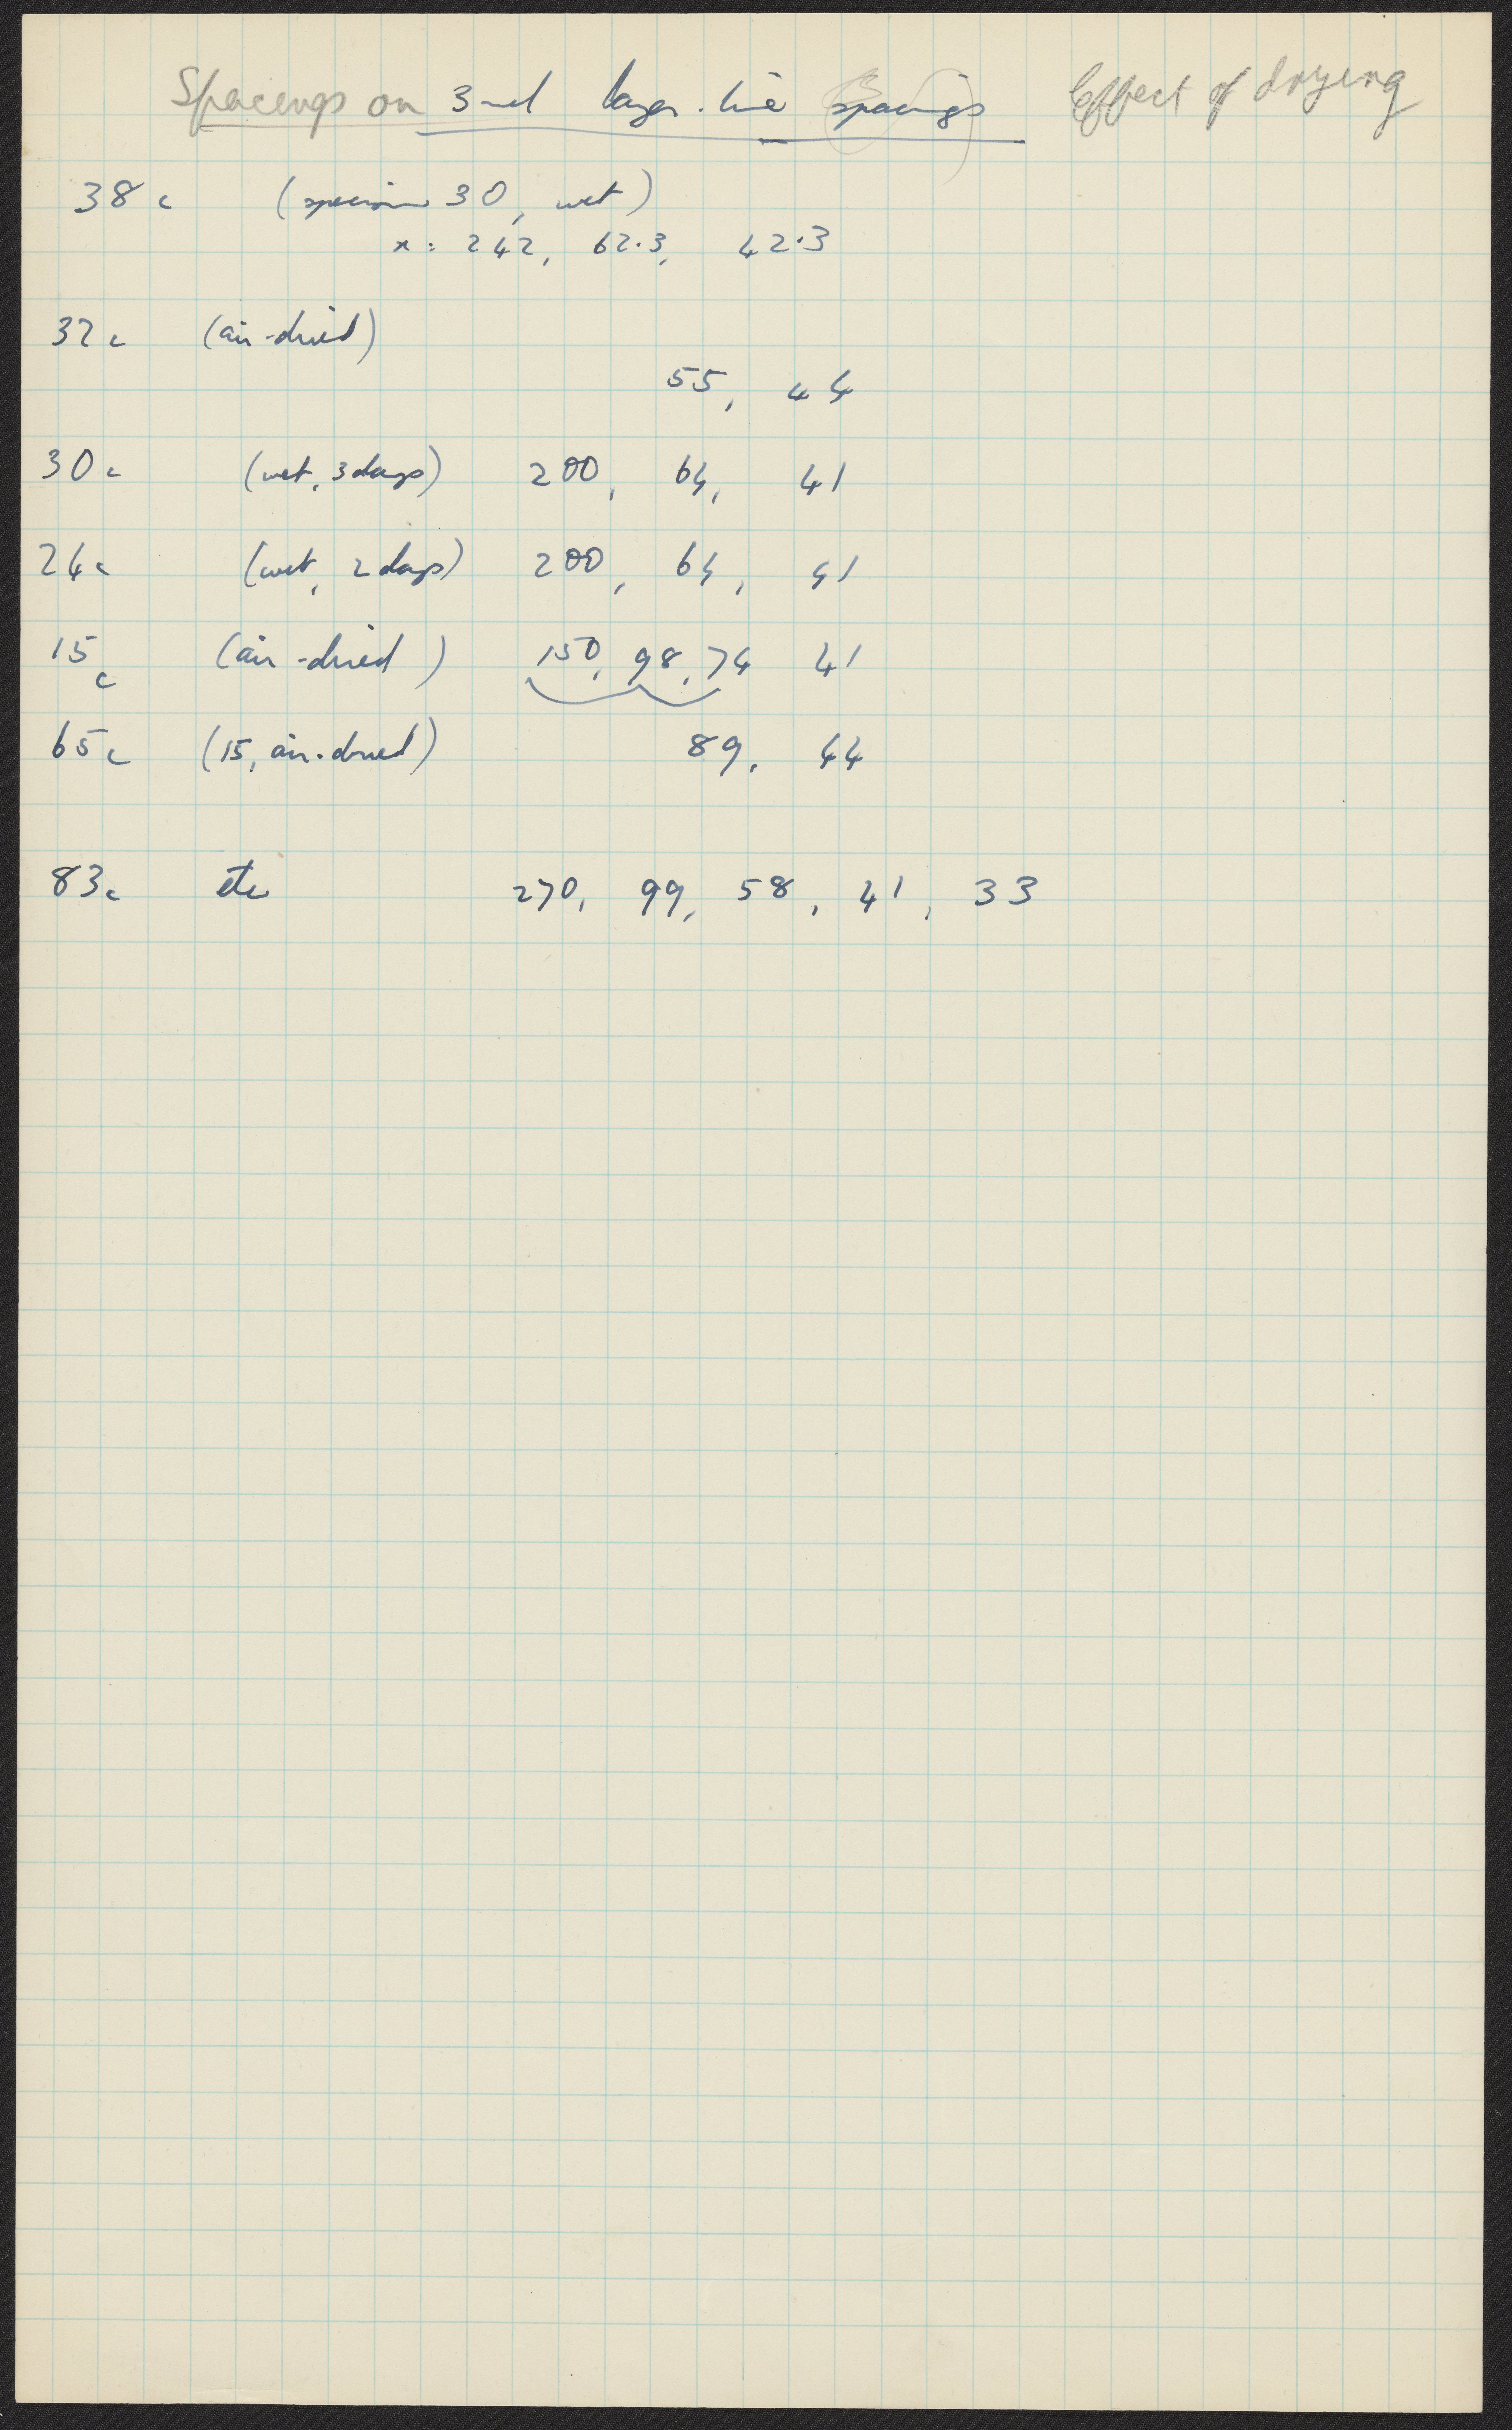 Spacings on 3rd layer-line spacings Effect of drying
38c (specimen 30, wet)
x: 242, 62.3, 42.3
32c (air-dried)
55, 44
30c (wet, 3 days) 200, 64, 41
24c (wet, 2 days) 200, 64, 41
15c (air-dried) 150, 98, 74 41
65c (15, air-dried) 89, 44
83c etc 270, 99, 58, 41, 33